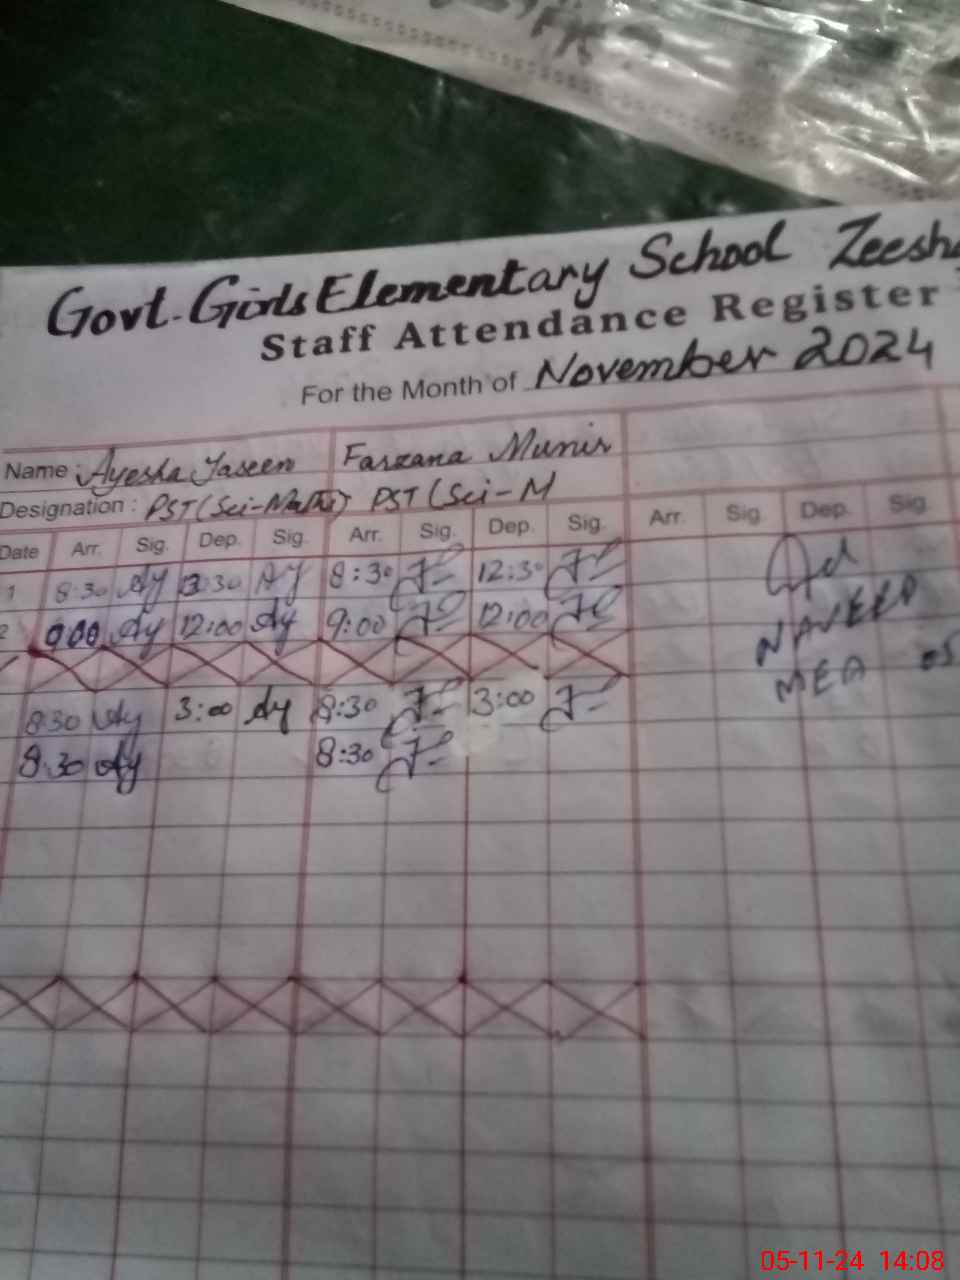 Govt. Girls Elementary School Zeesh
Staff Attendance Register
For the Month of November 2024
Name : Ayesha Yaseen Farzana Munir
Designation : PST (Sci-Math) PST (Sci-M
Date Arr. Sig. Dep. Sig. Arr. Sig. Dep. Sig. Arr. Sig. Dep. Sig.
1 8:30 Ay 12:30 Ay 8:30 12:30
2 9:00 Ay 12:00 Ay 9:00 12:00
NAVEED
MEA 05
8:30 Ay 3:00 Ay 8:30 3:00
8:30 Ay 8:30
05-11-24 14:08